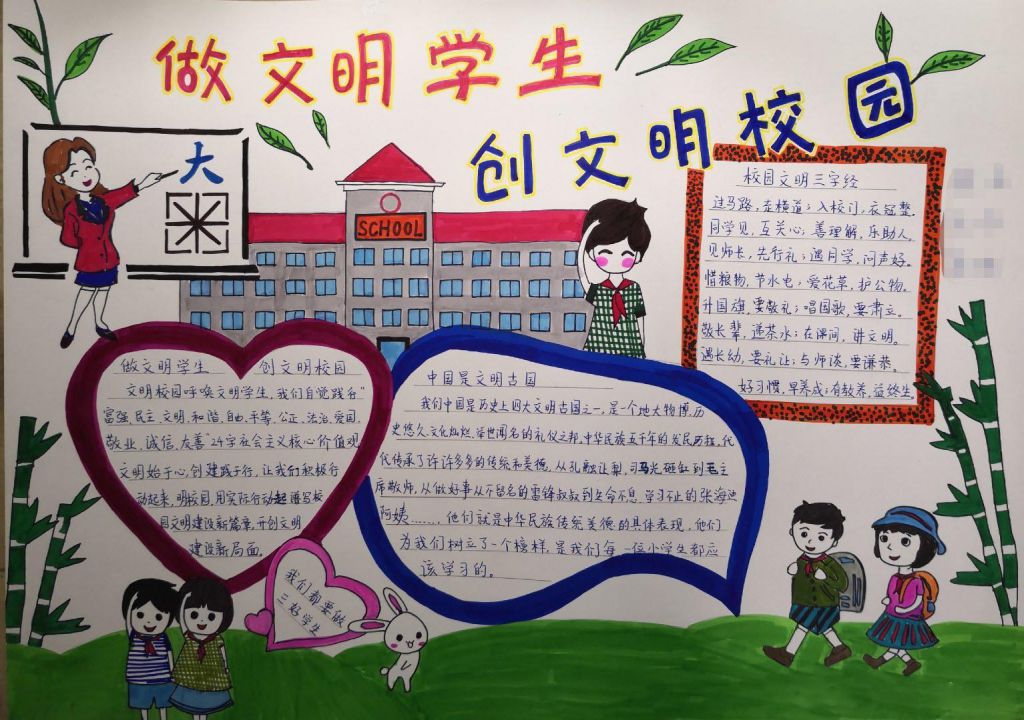 做文明学生
创文明校园
大
米
SCHOOL
校园文明三字经
过马路,走横道;入校门,衣冠整。
同学见,互关心;善理解,乐助人。
见师长,先行礼;遇同学,问声好。
惜粮物,节水电;爱花草,护公物。
升国旗,要敬礼;唱国歌,要肃立。
敬长辈,递茶水;在课间,讲文明。
遇长幼,要礼让;与师谈,要谦恭。
好习惯,早养成;有教养,益终生。
做文明学生 创文明校园
文明校园呼唤文明学生,我们自觉践行“
富强、民主、文明、和谐、自由、平等、公正、法治、爱国、
敬业、诚信、友善”24字社会主义核心价值观
文明始于心,创建践于行,让我们积极行
动起来,明校园,用实际行动起谱写校
园文明建设新篇章,开创文明
建设新局面。
中国是文明古国
我们中国是历史上四大文明古国之一,是一个地大物博、历
史悠久、文化灿烂、举世闻名的礼仪之邦,中华民族五千年的发展历程,代
代传承了许许多多的传统和美德,从孔融让梨,司马光砸缸到毛主
席敬师,从做好事从不留名的雷锋叔叔到生命不息,学习不止的张海迪
阿姨……,他们就是中华民族传统美德的具体表现,他们
为我们树立了一个榜样,是我们每一位小学生都应
该学习的。
我们都要做
三好学生